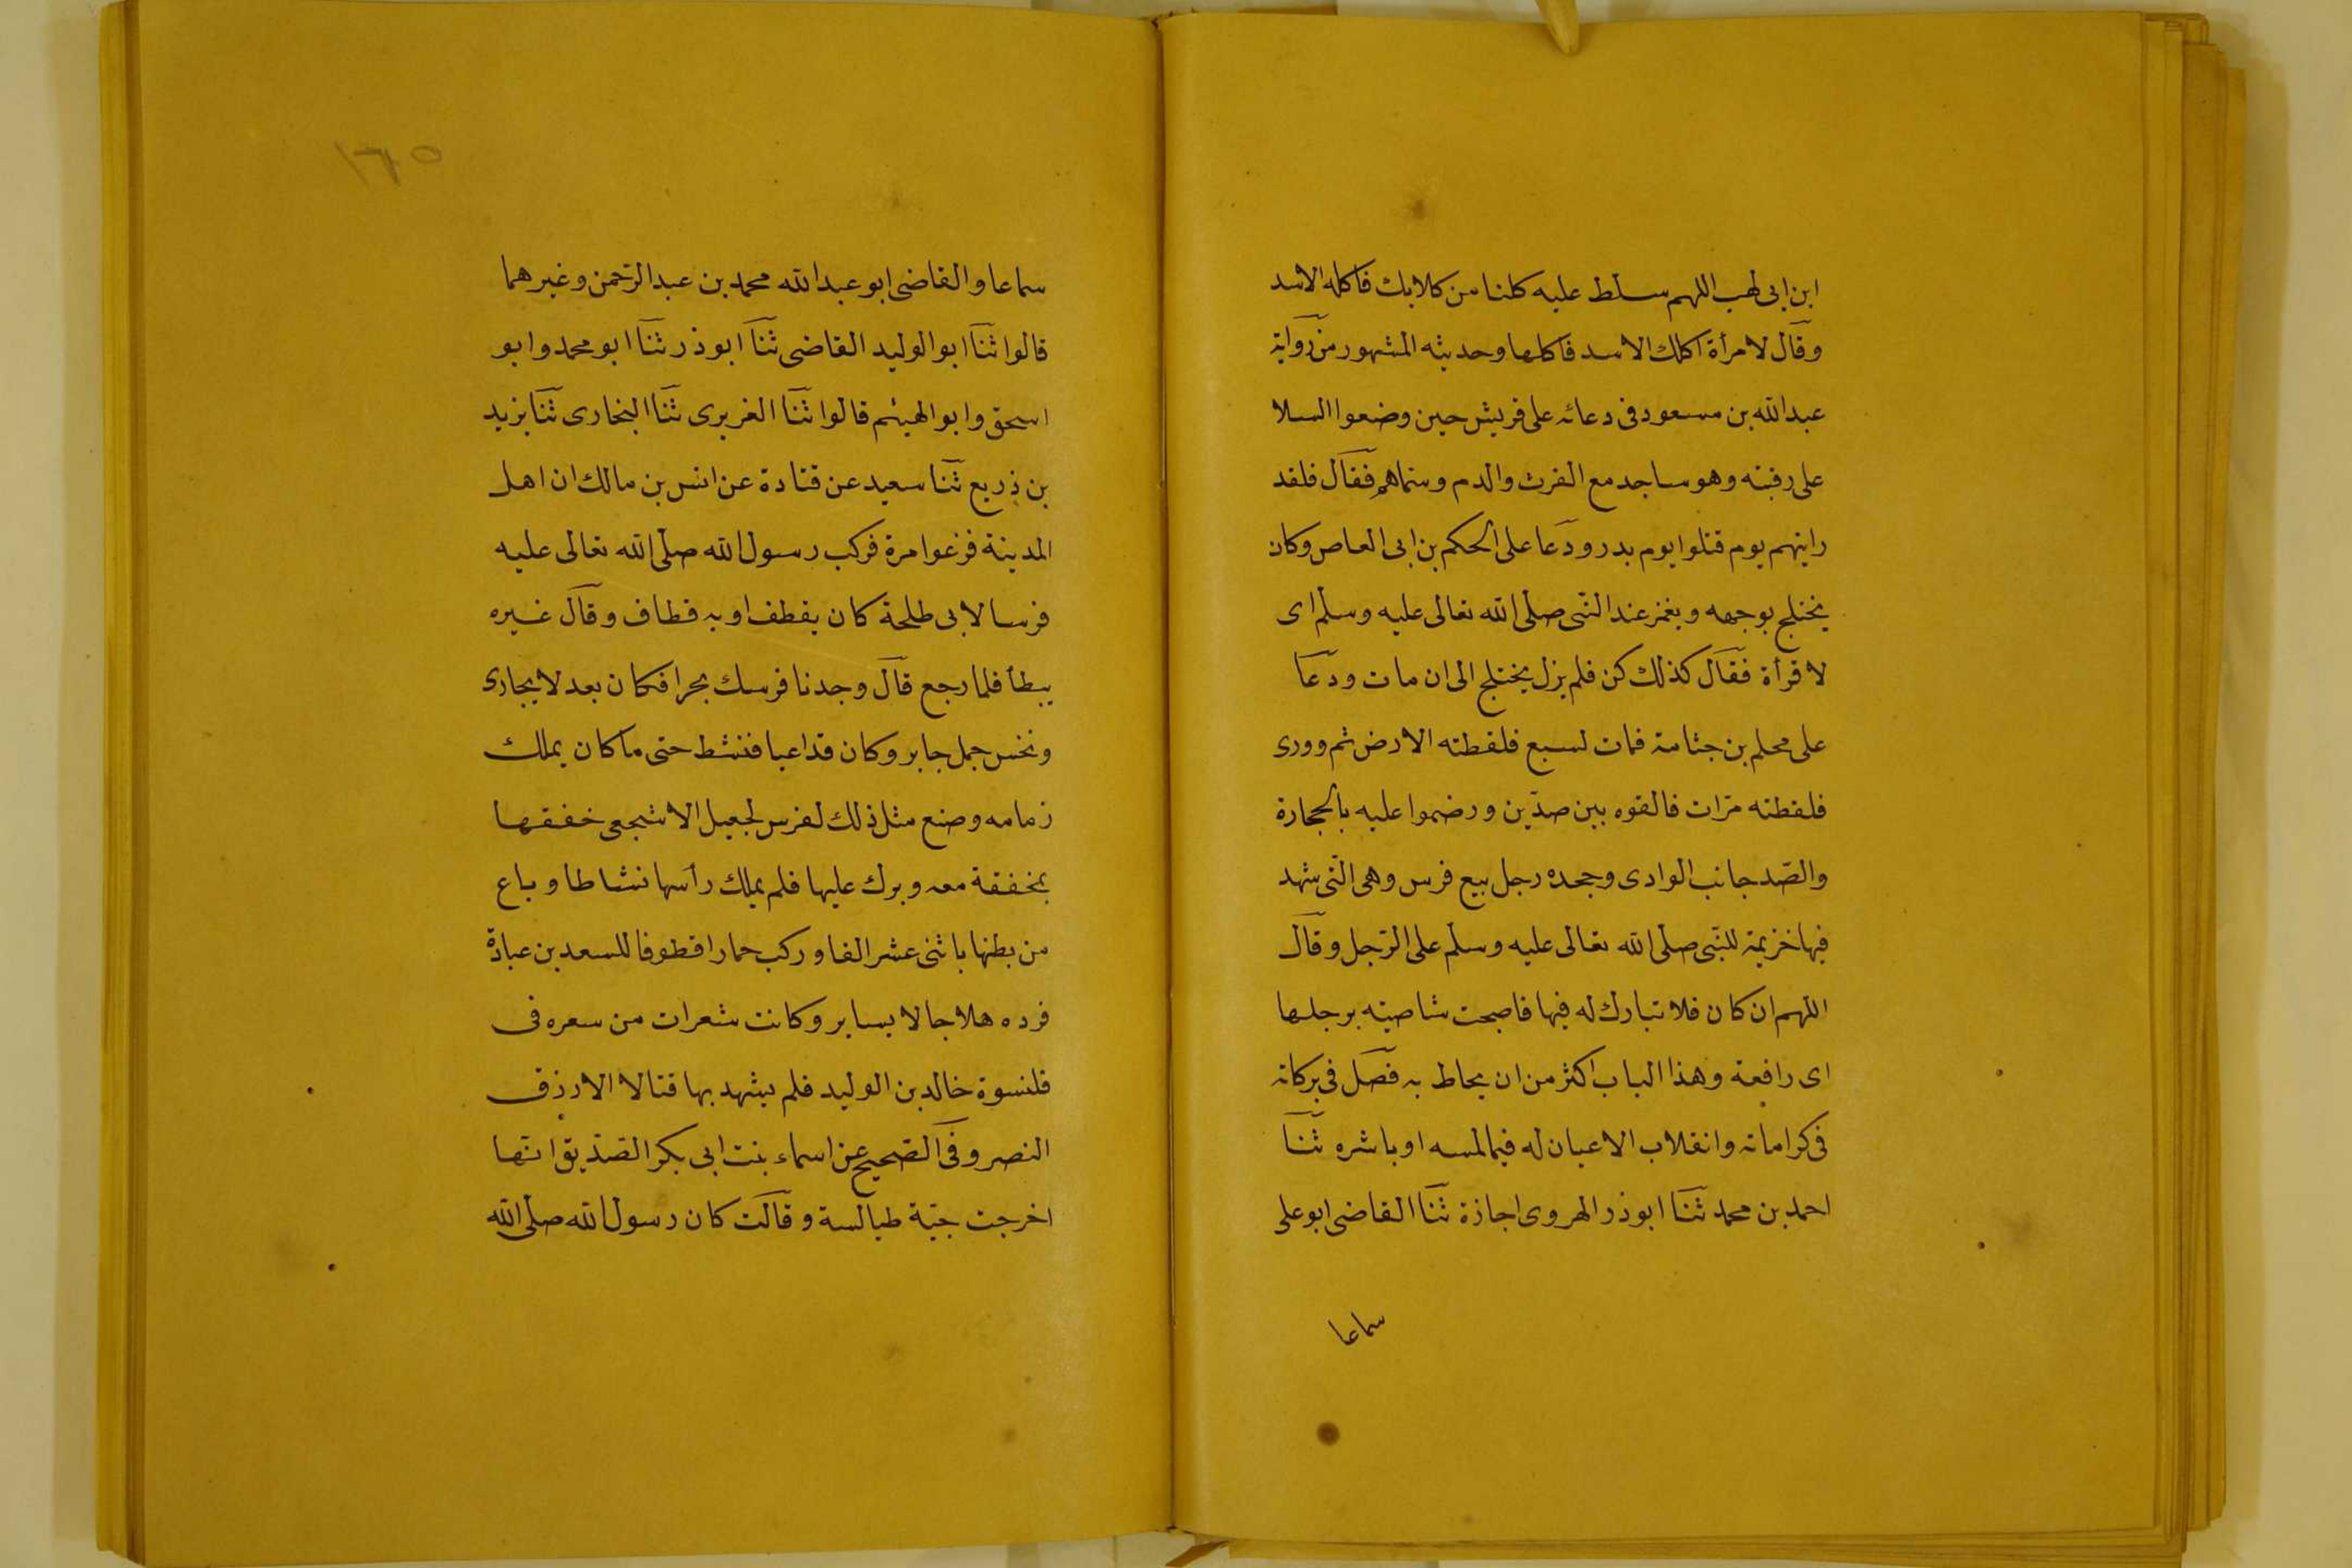 ابن ابى لهب اللهم سلط عليه كلبا من كلابك فاكله الاسد
وقال لامرأة اكلك الاسد فاكلها وحديثه المشهور من رواية
عبدالله بن مسعود فى دعائه على قريش حين وضعوا السلا
على رقبته وهو ساجد مع الفرث والدم وسماهم فقال فلقد
رايتهم يوم قتلوا يوم بدر ودعا على الحكم بن ابى العاص وكان
يختلج بوجهه ويغمز عند النّبى صلّى الله تعالى عليه وسلّم اى
لا قرأة فقال كذلك كن فلم يزل يختلج الى ان مات ودعا
على محلم بن جثامة فمات لسبع فلفظته الارض ثم وورى
فلفظته مرّات فالقوه بين صدّين ورضموا عليه بالحجارة
والصّد جانب الوادى وجحده رجل بيع فرس وهى الّتى شهد
فيها خزيمة للنّبى صلّى الله تعالى عليه وسلّم على الرّجل وقال
اللهم ان كان فلا تبارك له فيها فاصبحت شاصيته برجلها
اى رافعة وهذا الباب اكثر من ان يحاط به فصل فى بركاته
فى كراماته وانقلاب الاعيان له فيما لمسه او باشره ثنا
احمد بن محمد ثنا ابوذر الهروى اجازة ثنا القاضى ابوعلى
سماعا
١٦٥
سماعا والقاضى ابو عبدالله محمد بن عبدالرّحمن وغيرهما
قالوا ثنا ابو الوليد القاضى ثنا ابوذر ثنا ابو محمد وابو
اسحق وابو الهيثم قالوا ثنا الفربرى ثنا البخارى ثنا يزيد
بن ذريع ثنا سعيد عن قتادة عن انس بن مالك ان اهل
المدينة فزعوا مرة فركب رسول الله صلّى الله تعالى عليه
فرسا لابى طلحة كان يقطف او به قطاف وقال غيره
يبطأ فلما رجع قال وجدنا فرسك بحرا فكان بعد لا يجارى
ونخس جمل جابر وكان قد اعيا فنشط حتى ما كان يملك
زمامه وصنع مثل ذلك لفرس لجعيل الاشجعى خفقها
بمخفقة معه وبرك عليها فلم يملك رأسها نشاطا وباع
من بطنها باثنى عشر الفا وركب حمارا قطوفا للسعد بن عبادة
فرده هلاجا لا يساير وكانت شعرات من سعره فى
قلنسوة خالد بن الوليد فلم يشهد بها قتالا الا رزق
النصر وفى الصّحيح عن اسماء بنت ابى بكر الصّدّيق انّها
اخرجت جبّة طيالسة وقالت كان رسول الله صلّى الله